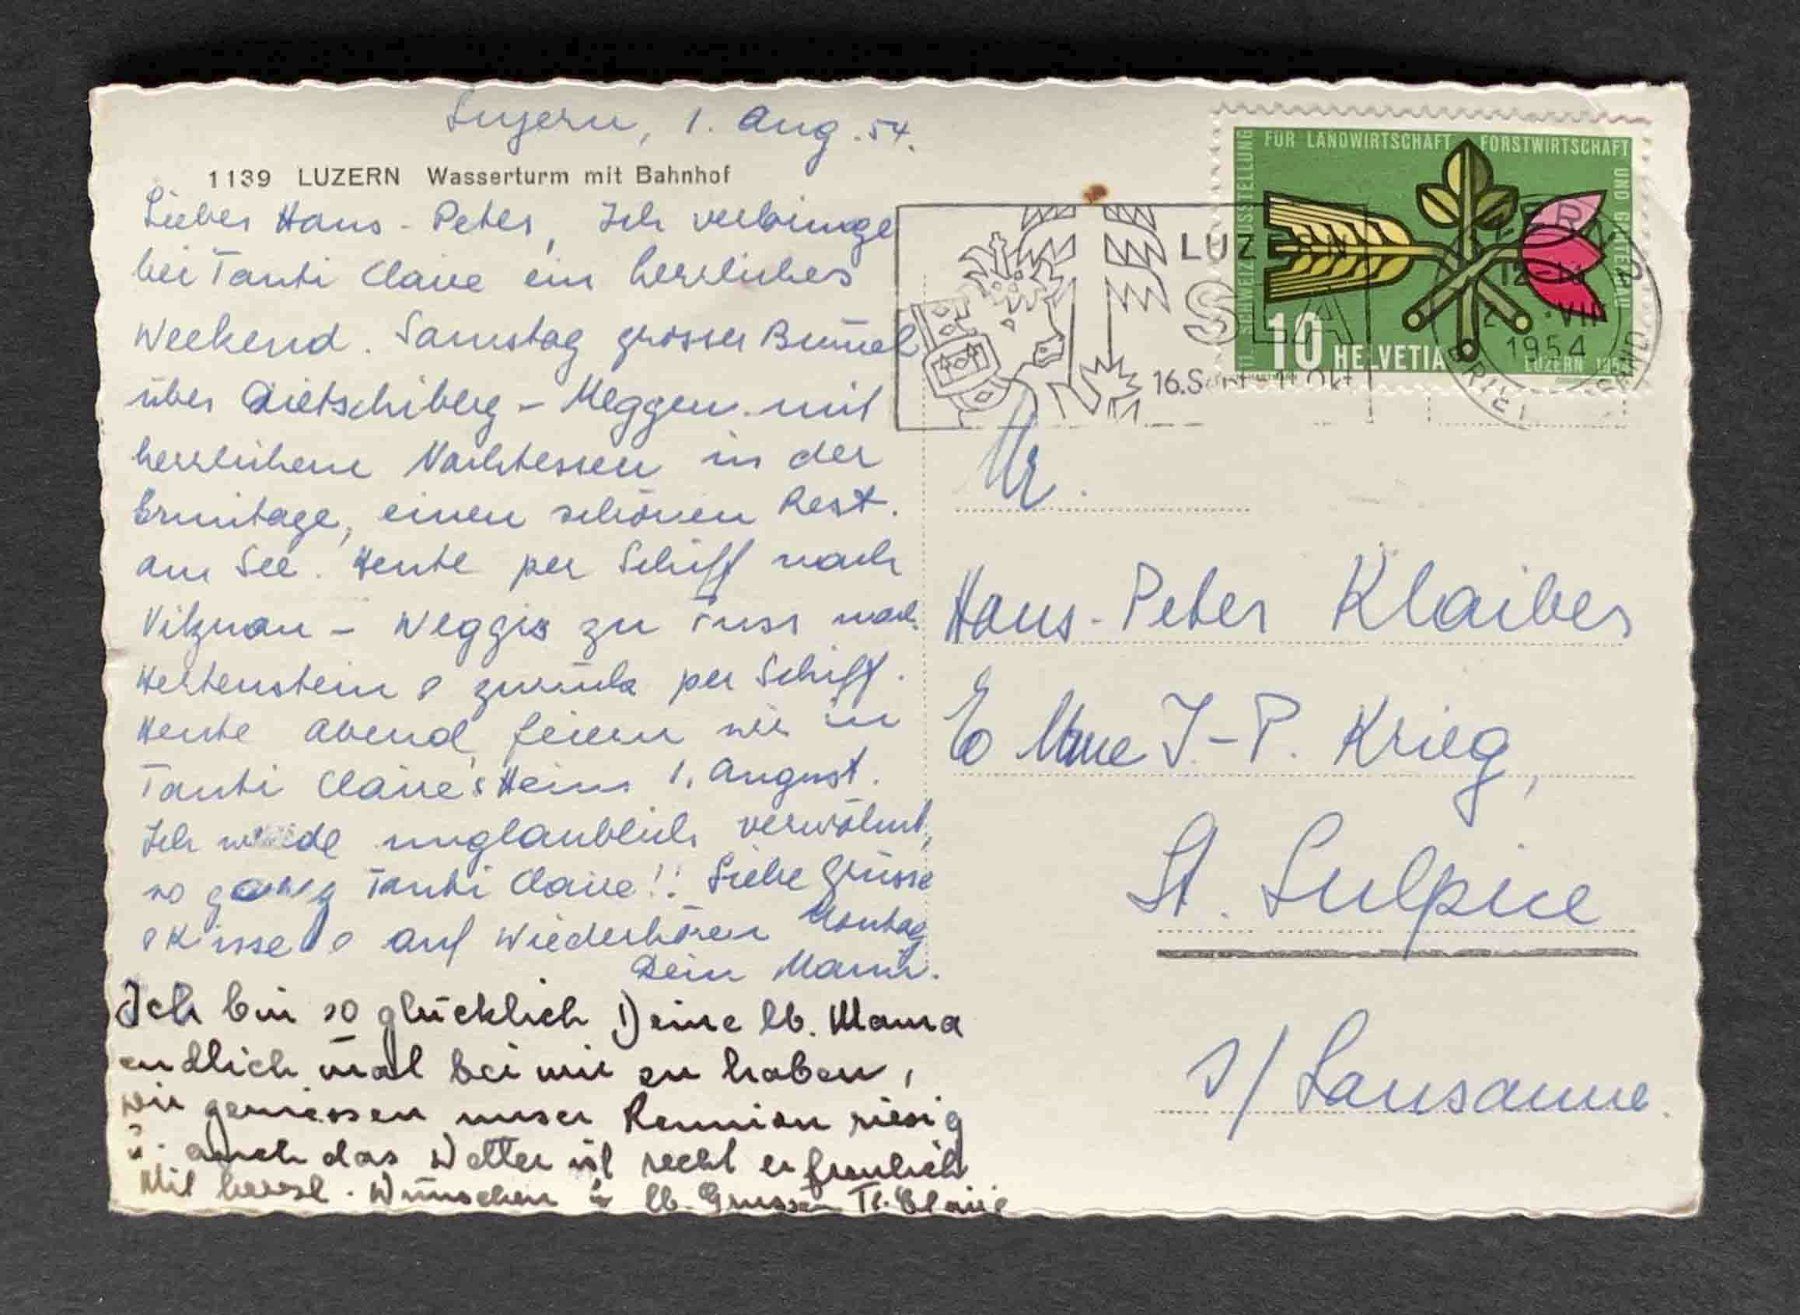 Luzern, 1. Aug. 54.
1139 LUZERN Wasserturm mit Bahnhof
Lieber Hans-Peter, Ich verbringe
bei Tanti Claire ein herrliches
Weekend. Samstag grosser Bummel
über Dietschiberg – Meggen mit
herrlichem Nachtessen in der
Ermitage, einen schönen Rest.
am See. Heute per Schiff nach
Vitznau – Weggis zu Fuss nach
Hertenstein & zurück per Schiff.
Heute Abend feiern wir in
Tanti Claire's Heim 1. August.
Ich werde unglaublich verwöhnt,
so ganz Tanti Claire!! Liebe Grüsse
& Küsse & auf Wiederhören Montag
Dein Mami.
Ich bin so glücklich Deine lb. Mama
endlich mal bei mir zu haben,
wir geniessen unser Reunion riesig
u. auch das Wetter ist recht erfreulich
Mit herzl. Wünschen & lb. Grüssen Tt. Claire
11. SCHWEIZ. AUSSTELLUNG FÜR LANDWIRTSCHAFT FORSTWIRTSCHAFT UND GARTENBAU
10 HELVETIA
LUZERN 1954
LUZERN
SLA
16. Sept. - 11. Okt.
LUZERN 2
12-
VIII
1954
BRIEFVERSAND
Mr.
Hans-Peter Klaiber
Mme J-P. Krieg,
St. Sulpice
s/ Lausanne.